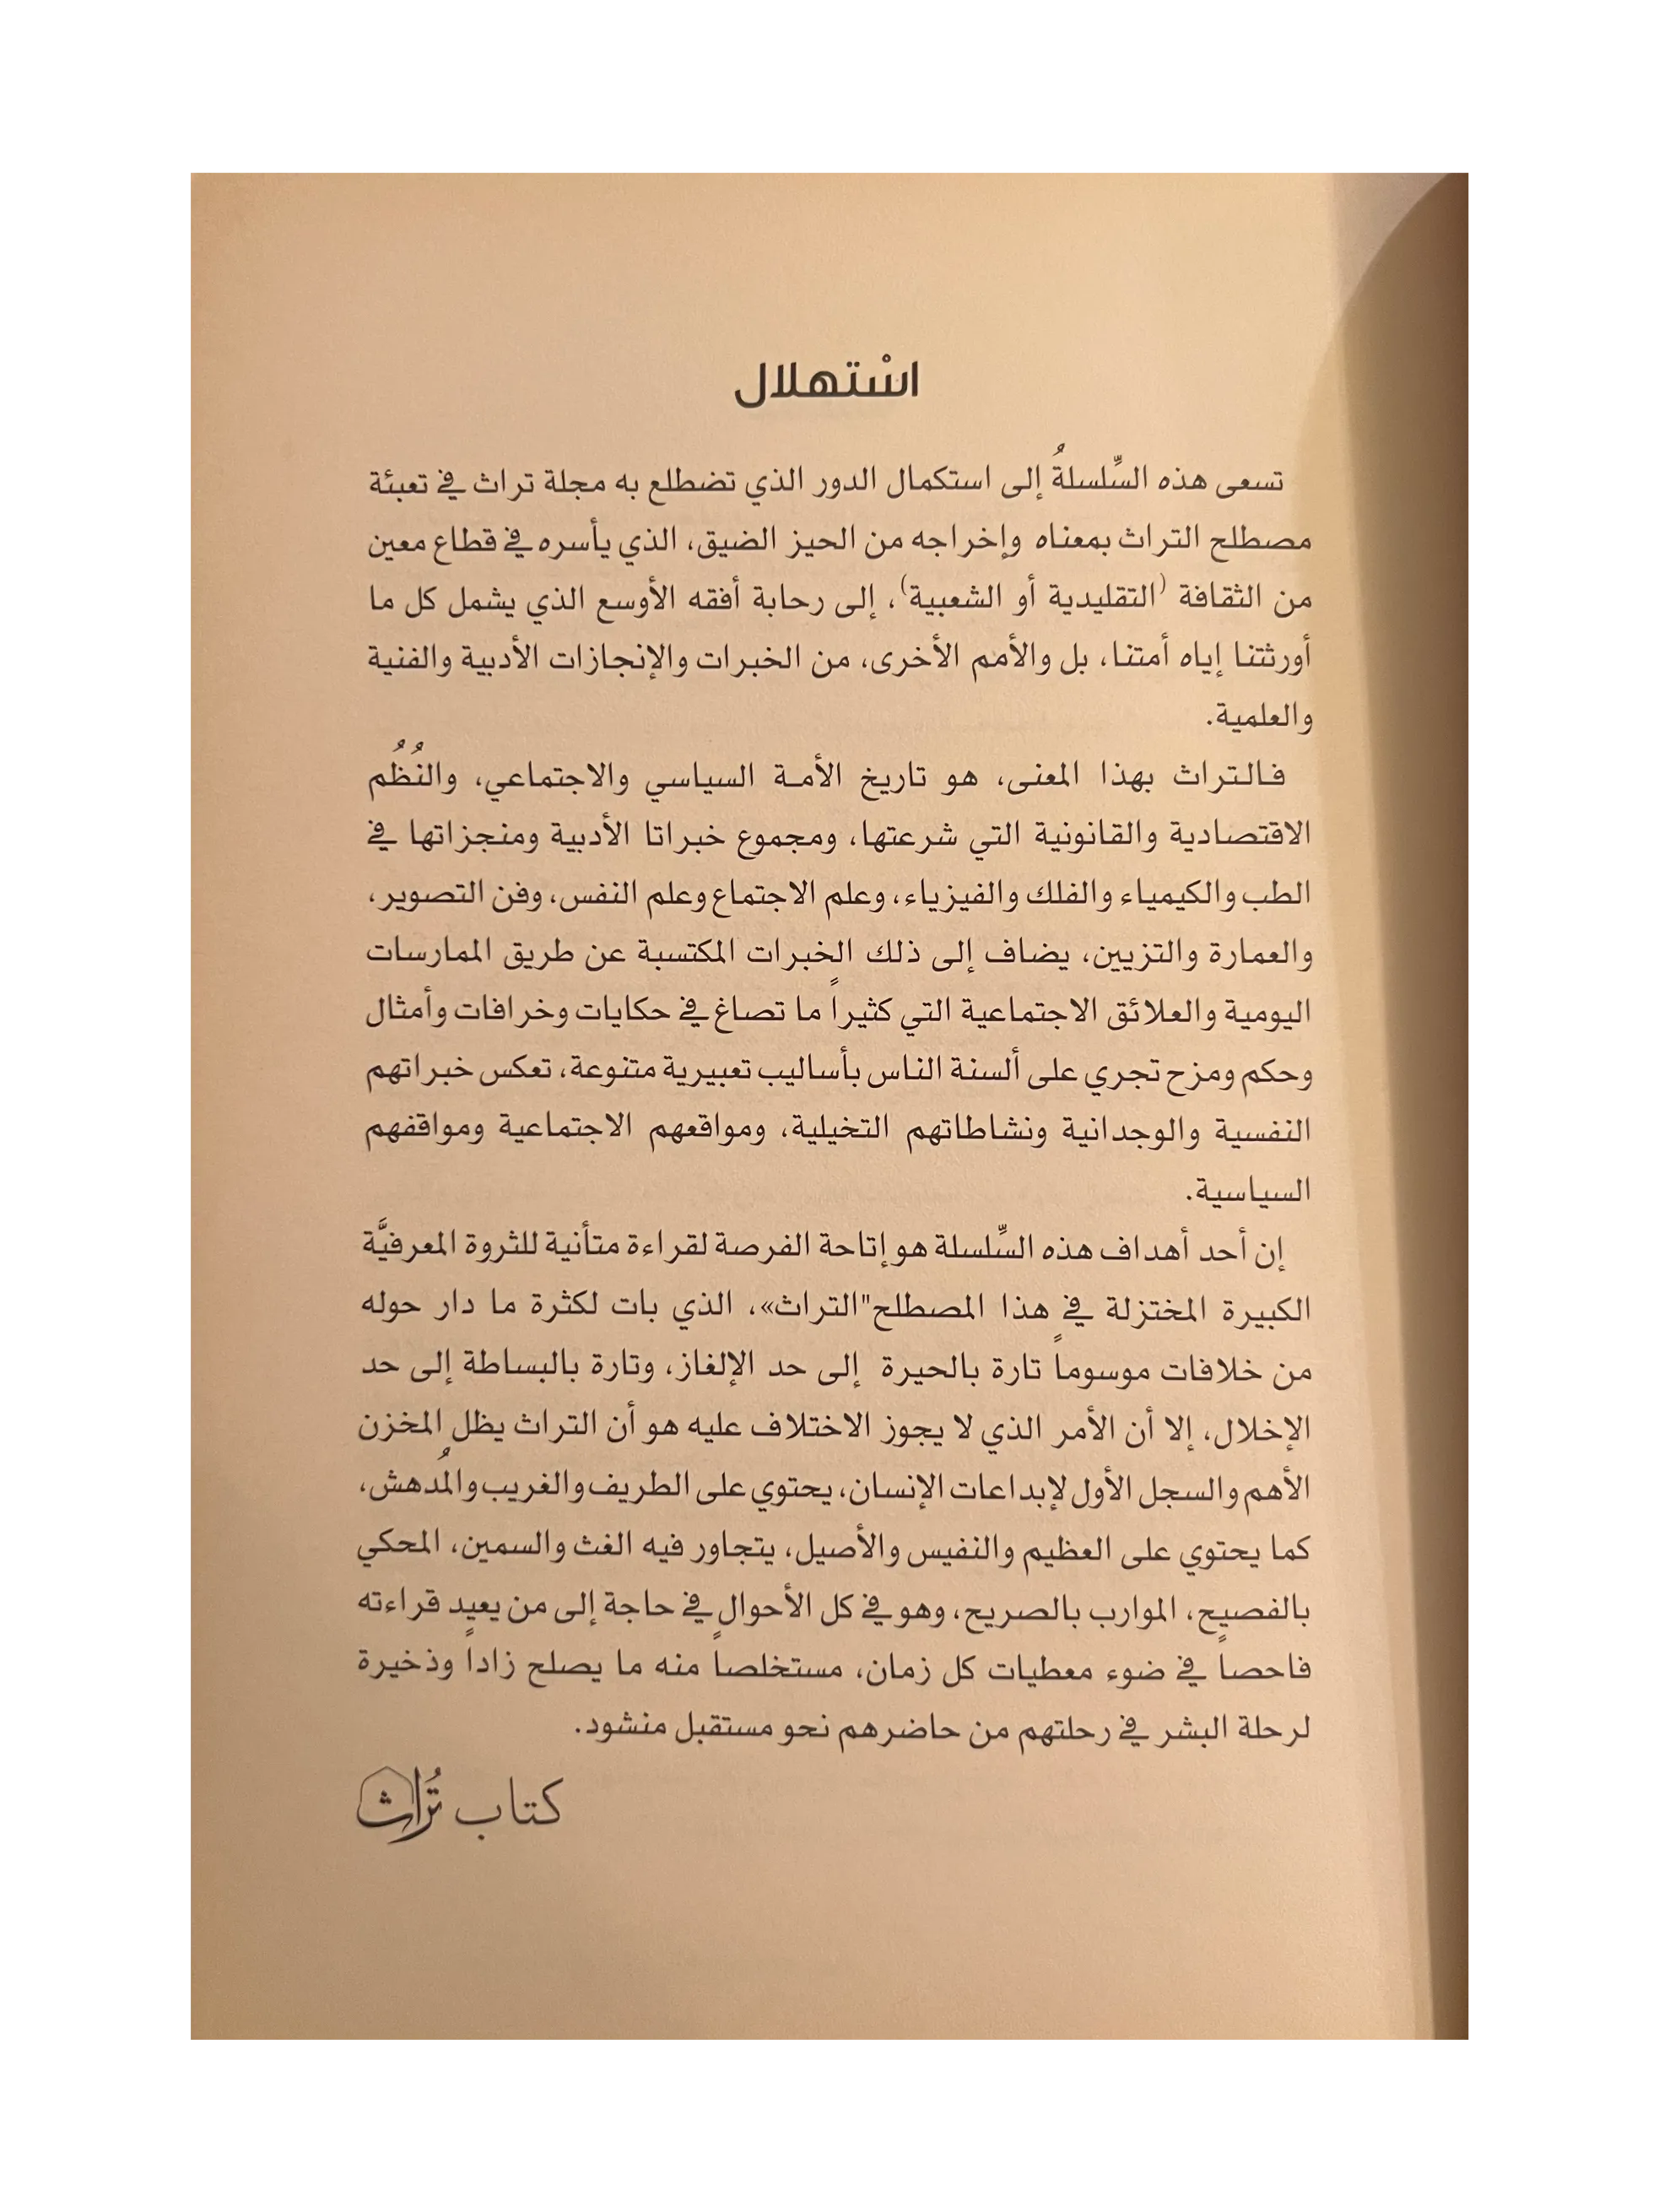 اسْتهلال
تسعى هذه السِّلسلةُ إلى استكمال الدور الذي تضطلع به مجلة تراث في تعبئة
مصطلح التراث بمعناه وإخراجه من الحيز الضيق، الذي يأسره في قطاع معين
من الثقافة (التقليدية أو الشعبية)، إلى رحابة أفقه الأوسع الذي يشمل كل ما
أورثتنا إياه أمتنا، بل والأمم الأخرى، من الخبرات والإنجازات الأدبية والفنية
والعلمية.
فالتراث بهذا المعنى، هو تاريخ الأمة السياسي والاجتماعي، والنُظُم
الاقتصادية والقانونية التي شرعتها، ومجموع خبراتا الأدبية ومنجزاتها في
الطب والكيمياء والفلك والفيزياء، وعلم الاجتماع وعلم النفس، وفن التصوير،
والعمارة والتزيين، يضاف إلى ذلك الخبرات المكتسبة عن طريق الممارسات
اليومية والعلائق الاجتماعية التي كثيراً ما تصاغ في حكايات وخرافات وأمثال
وحكم ومزح تجري على ألسنة الناس بأساليب تعبيرية متنوعة، تعكس خبراتهم
النفسية والوجدانية ونشاطاتهم التخيلية، ومواقعهم الاجتماعية ومواقفهم
السياسية.
إن أحد أهداف هذه السِّلسلة هو إتاحة الفرصة لقراءة متأنية للثروة المعرفيَّة
الكبيرة المختزلة في هذا المصطلح"التراث»، الذي بات لكثرة ما دار حوله
من خلافات موسوماً تارة بالحيرة إلى حد الإلغاز، وتارة بالبساطة إلى حد
الإخلال، إلا أن الأمر الذي لا يجوز الاختلاف عليه هو أن التراث يظل المخزن
الأهم والسجل الأول لإبداعات الإنسان، يحتوي على الطريف والغريب والمُدهش،
كما يحتوي على العظيم والنفيس والأصيل، يتجاور فيه الغث والسمين، المحكي
بالفصيح، الموارب بالصريح، وهو في كل الأحوال في حاجة إلى من يعيد قراءته
فاحصاً في ضوء معطيات كل زمان، مستخلصاً منه ما يصلح زاداً وذخيرة
لرحلة البشر في رحلتهم من حاضرهم نحو مستقبل منشود.
كتاب تُراث